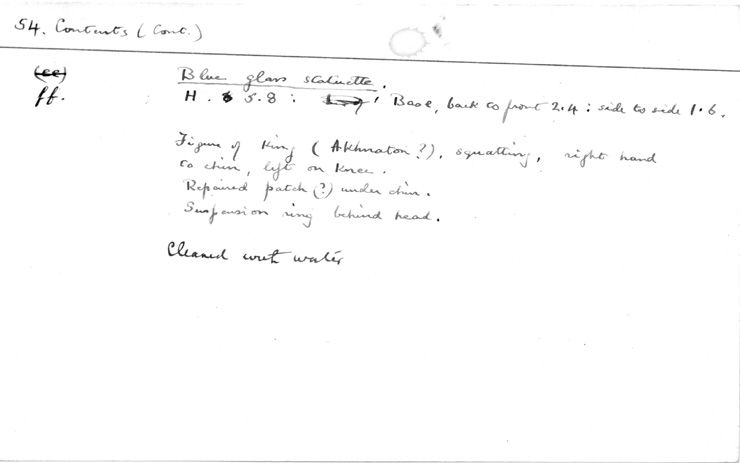 54. Contents (Cont.)
(ee)
ff.
Blue glass statuette.
H. 5.8 : Base, back to front 2.4 : side to side 1.6.
Figure of King (Akhnaton ?), squatting, right hand
to chin, left on knee.
Repaired patch (?) under chin.
Suspension ring behind head.
Cleaned with water